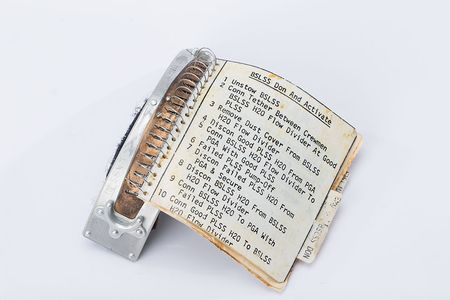 BSLSS Don And Activate
1 Unstow BSLSS
2 Conn Tether Between Crewmen
BSLSS H2O Flow Divider At Good
PLSS
3 Remove Dust Cover From BSLSS
H2O Flow Divider
4 Discon Good PLSS H2O From PGA
5 Conn BSLSS H2O Flow Divider To
PGA With Good PLSS
6 Failed PLSS Pump-Off
7 Discon Failed PLSS H2O From
PGA & Secure
8 Discon BSLSS H2O From BSLSS
H2O Flow Divider
9 Conn BSLSS H2O To PGA With
Failed PLSS
10 Conn Good PLSS H2O To BSLSS
H2O Flow Divider